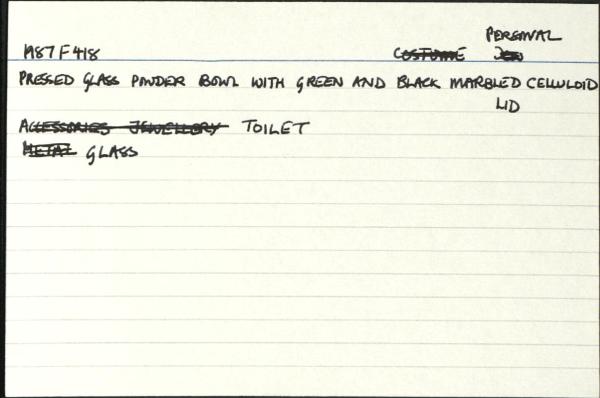 PERSONAL
1987F418 COSTUME JEW
PRESSED GLASS POWDER BOWL WITH GREEN AND BLACK MARBLED CELLULOID
LID
ACCESSORIES JEWELLERY TOILET
METAL GLASS